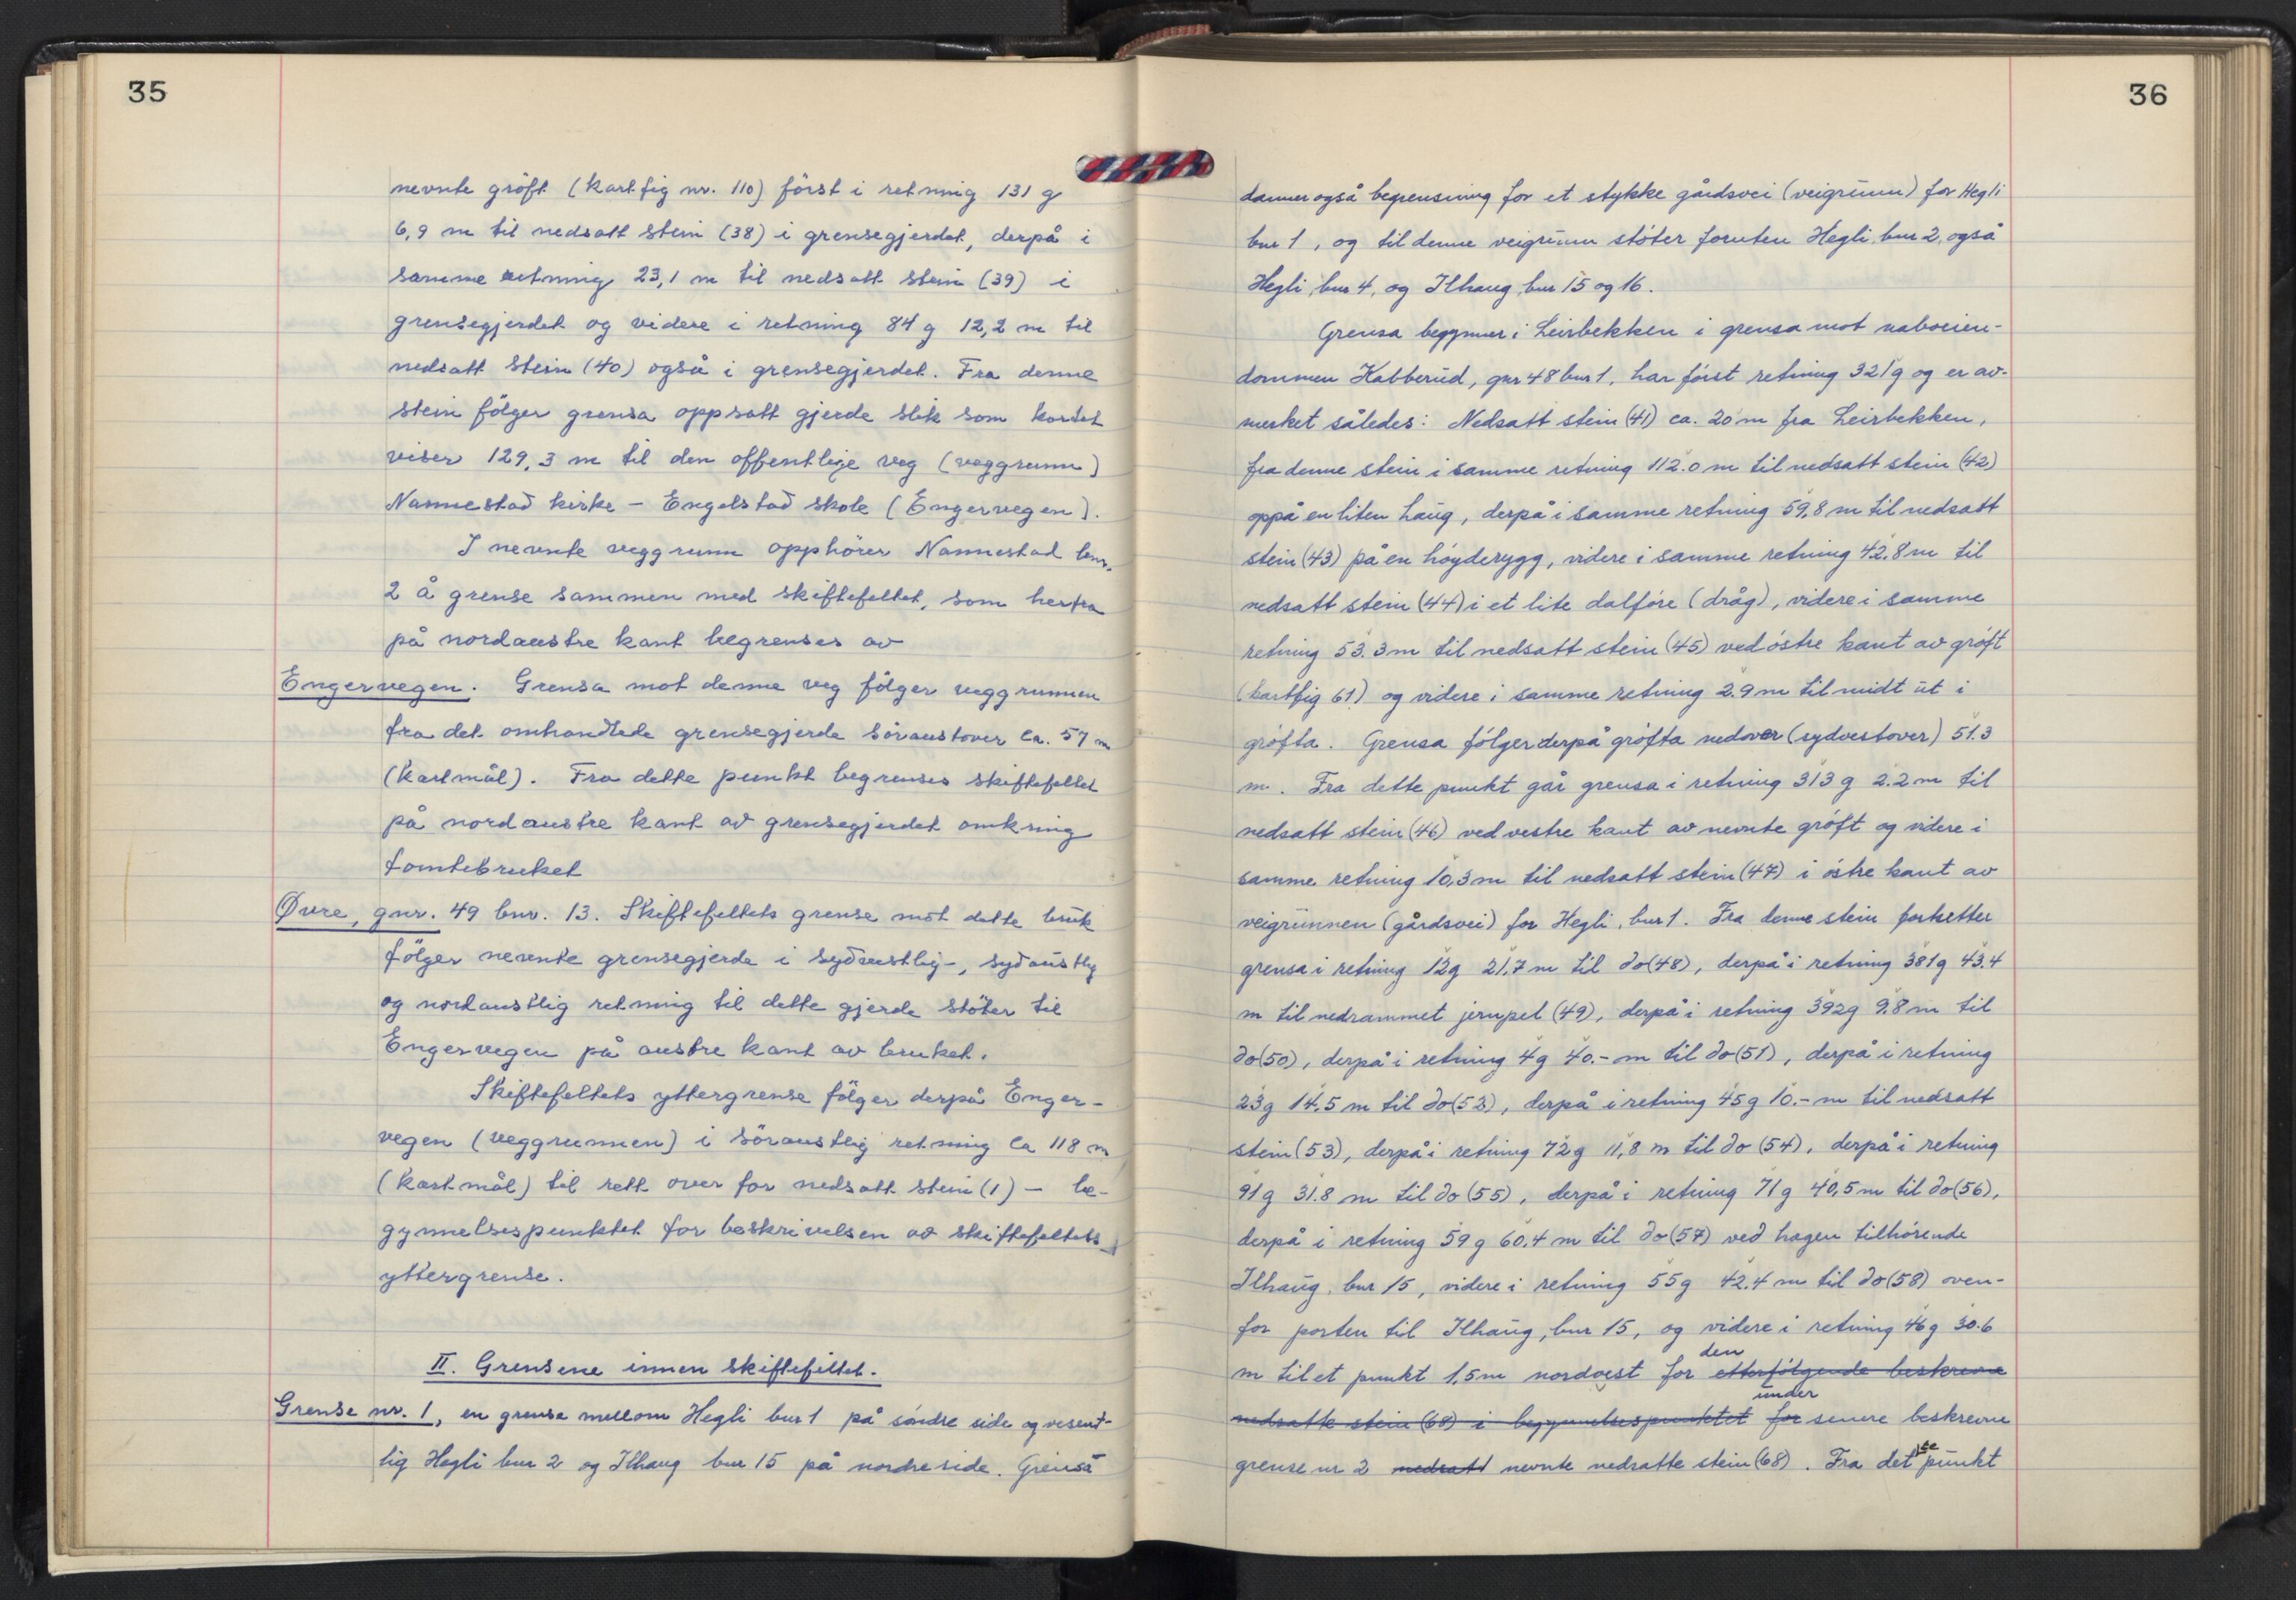 35
nevnte gröft (kartfig nr. 110) först i retning 131 g
6,9 m til nedsatt stein (38) i grensegjerdet, derpå i
samme retning 23,1 m til nedsatt stein (39) i
grensegjerdet og videre i retning 84 g 12,2 m til
nedsatt stein (40) også i grensegjerdet. Fra denne
stein fölger grensa oppsatt gjerde slik som kartet
viser 129,3 m til den offentlige veg (veggrunn)
Nannestad kirke – Engelstad skole (Engervegen).
I nevnte veggrunn opphörer Nannestad bnr.
2 å grense sammen med skiftefeltet, som herfra
på nordaustre kant begrenses av
Engervegen. Grensa mot denne veg fölger veggrunnen
fra det omhandlede grensegjerde söraustover ca. 57 m
(kartmål). Fra dette punkt begrenses skiftefeltet
på nordaustre kant av grensegjerdet omkring
tomtebruket
Øvre, gnr. 49 bnr. 13. Skiftefeltets grense mot dette bruk
fölger nevnte grensegjerde i sydvestlig-, sydaustlig
og nordaustlig retning til dette gjerde stöter til
Engervegen på austre kant av bruket.
Skiftefeltets yttergrense fölger derpå Enger-
vegen (veggrunnen) i söraustlig retning ca 118 m
(kartmål) til rett over for nedsatt stein (1) – be-
gynnelsespunktet for beskrivelsen av skiftefeltets
yttergrense.
II. Grensene innen skiftefeltet.
Grense nr. 1, en grense mellom Hegli bnr 1 på söndre side og vesent-
lig Hegli bnr 2 og Ilhaug bnr 15 på nordre side. Grensa
36
danner også begrensning for et stykke gårdsvei (veigrunn) for Hegli
bnr 1, og til denne veigrunn stöter foruten Hegli, bnr 2, også
Hegli, bnr 4, og Ilhaug, bnr 15 og 16.
Grensa begynner i Leirbekken i grensa mot naboeien-
dommen Kabberud, gnr 48 bnr 1, har först retning 321 g og er av-
merket således: Nedsatt stein (41) ca. 20 m fra Leirbekken,
fra denne stein i samme retning 112.0 m til nedsatt stein (42)
oppå en liten haug, derpå i samme retning 59,8 m til nedsatt
stein (43) på en höyderygg, videre i samme retning 42.8 m til
nedsatt stein (44) i et lite dalföre (dråg), videre i samme
retning 53.3 m til nedsatt stein (45) ved östre kant av gröft
(kartfig 61) og videre i samme retning 2.9 m til midt ut i
gröfta. Grensa fölger derpå gröfta nedover (sydvestover) 51.3
m. Fra dette punkt går grensa i retning 313 g 2.2 m til
nedsatt stein (46) ved vestre kant av nevnte gröft og videre i
samme retning 10,3 m til nedsatt stein (47) i östre kant av
veigrunnen (gårdsvei) for Hegli, bnr 1. Fra denne stein fortsetter
grensa i retning 12g 21.7 m til do (48), derpå i retning 381g 43.4
m til nedrammet jernpel (49), derpå i retning 392g 9.8 m til
do (50), derpå i retning 4g 40.- m til do (51), derpå i retning
23g 14,5 m til do (52), derpå i retning 45g 10.- m til nedsatt
stein (53), derpå i retning 72g 11,8 m til do (54), derpå i retning
91g 31.8 m til do (55), derpå i retning 71g 40,5 m til do (56),
derpå i retning 59 g 60.4 m til do (57) ved hagen tilhörende
Ilhaug, bnr 15, videre i retning 55g 42.4 m til do (58) oven-
for porten til Ilhaug, bnr 15, og videre i retning 46g 30.6
m til et punkt 1,5 m nordvest for den etterfölgende beskrevne
nedsatte stein (68) i begynnelsespunktet for under senere beskrevne
grense nr 2 nedsatt nevnte nedsatte stein (68). Fra det 1ste punkt